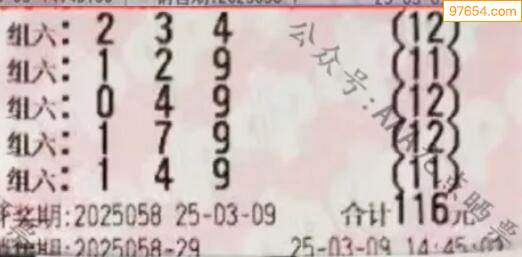 97654.com
组六: 2 3 4 (12)
组六: 1 2 9 (11)
组六: 0 4 9 (12)
组六: 1 7 9 (12)
组六: 1 4 9 (11)
奖期:2025058 25-03-09 合计116元
期:2025058-29 25-03-09 14:45:0
公众号: